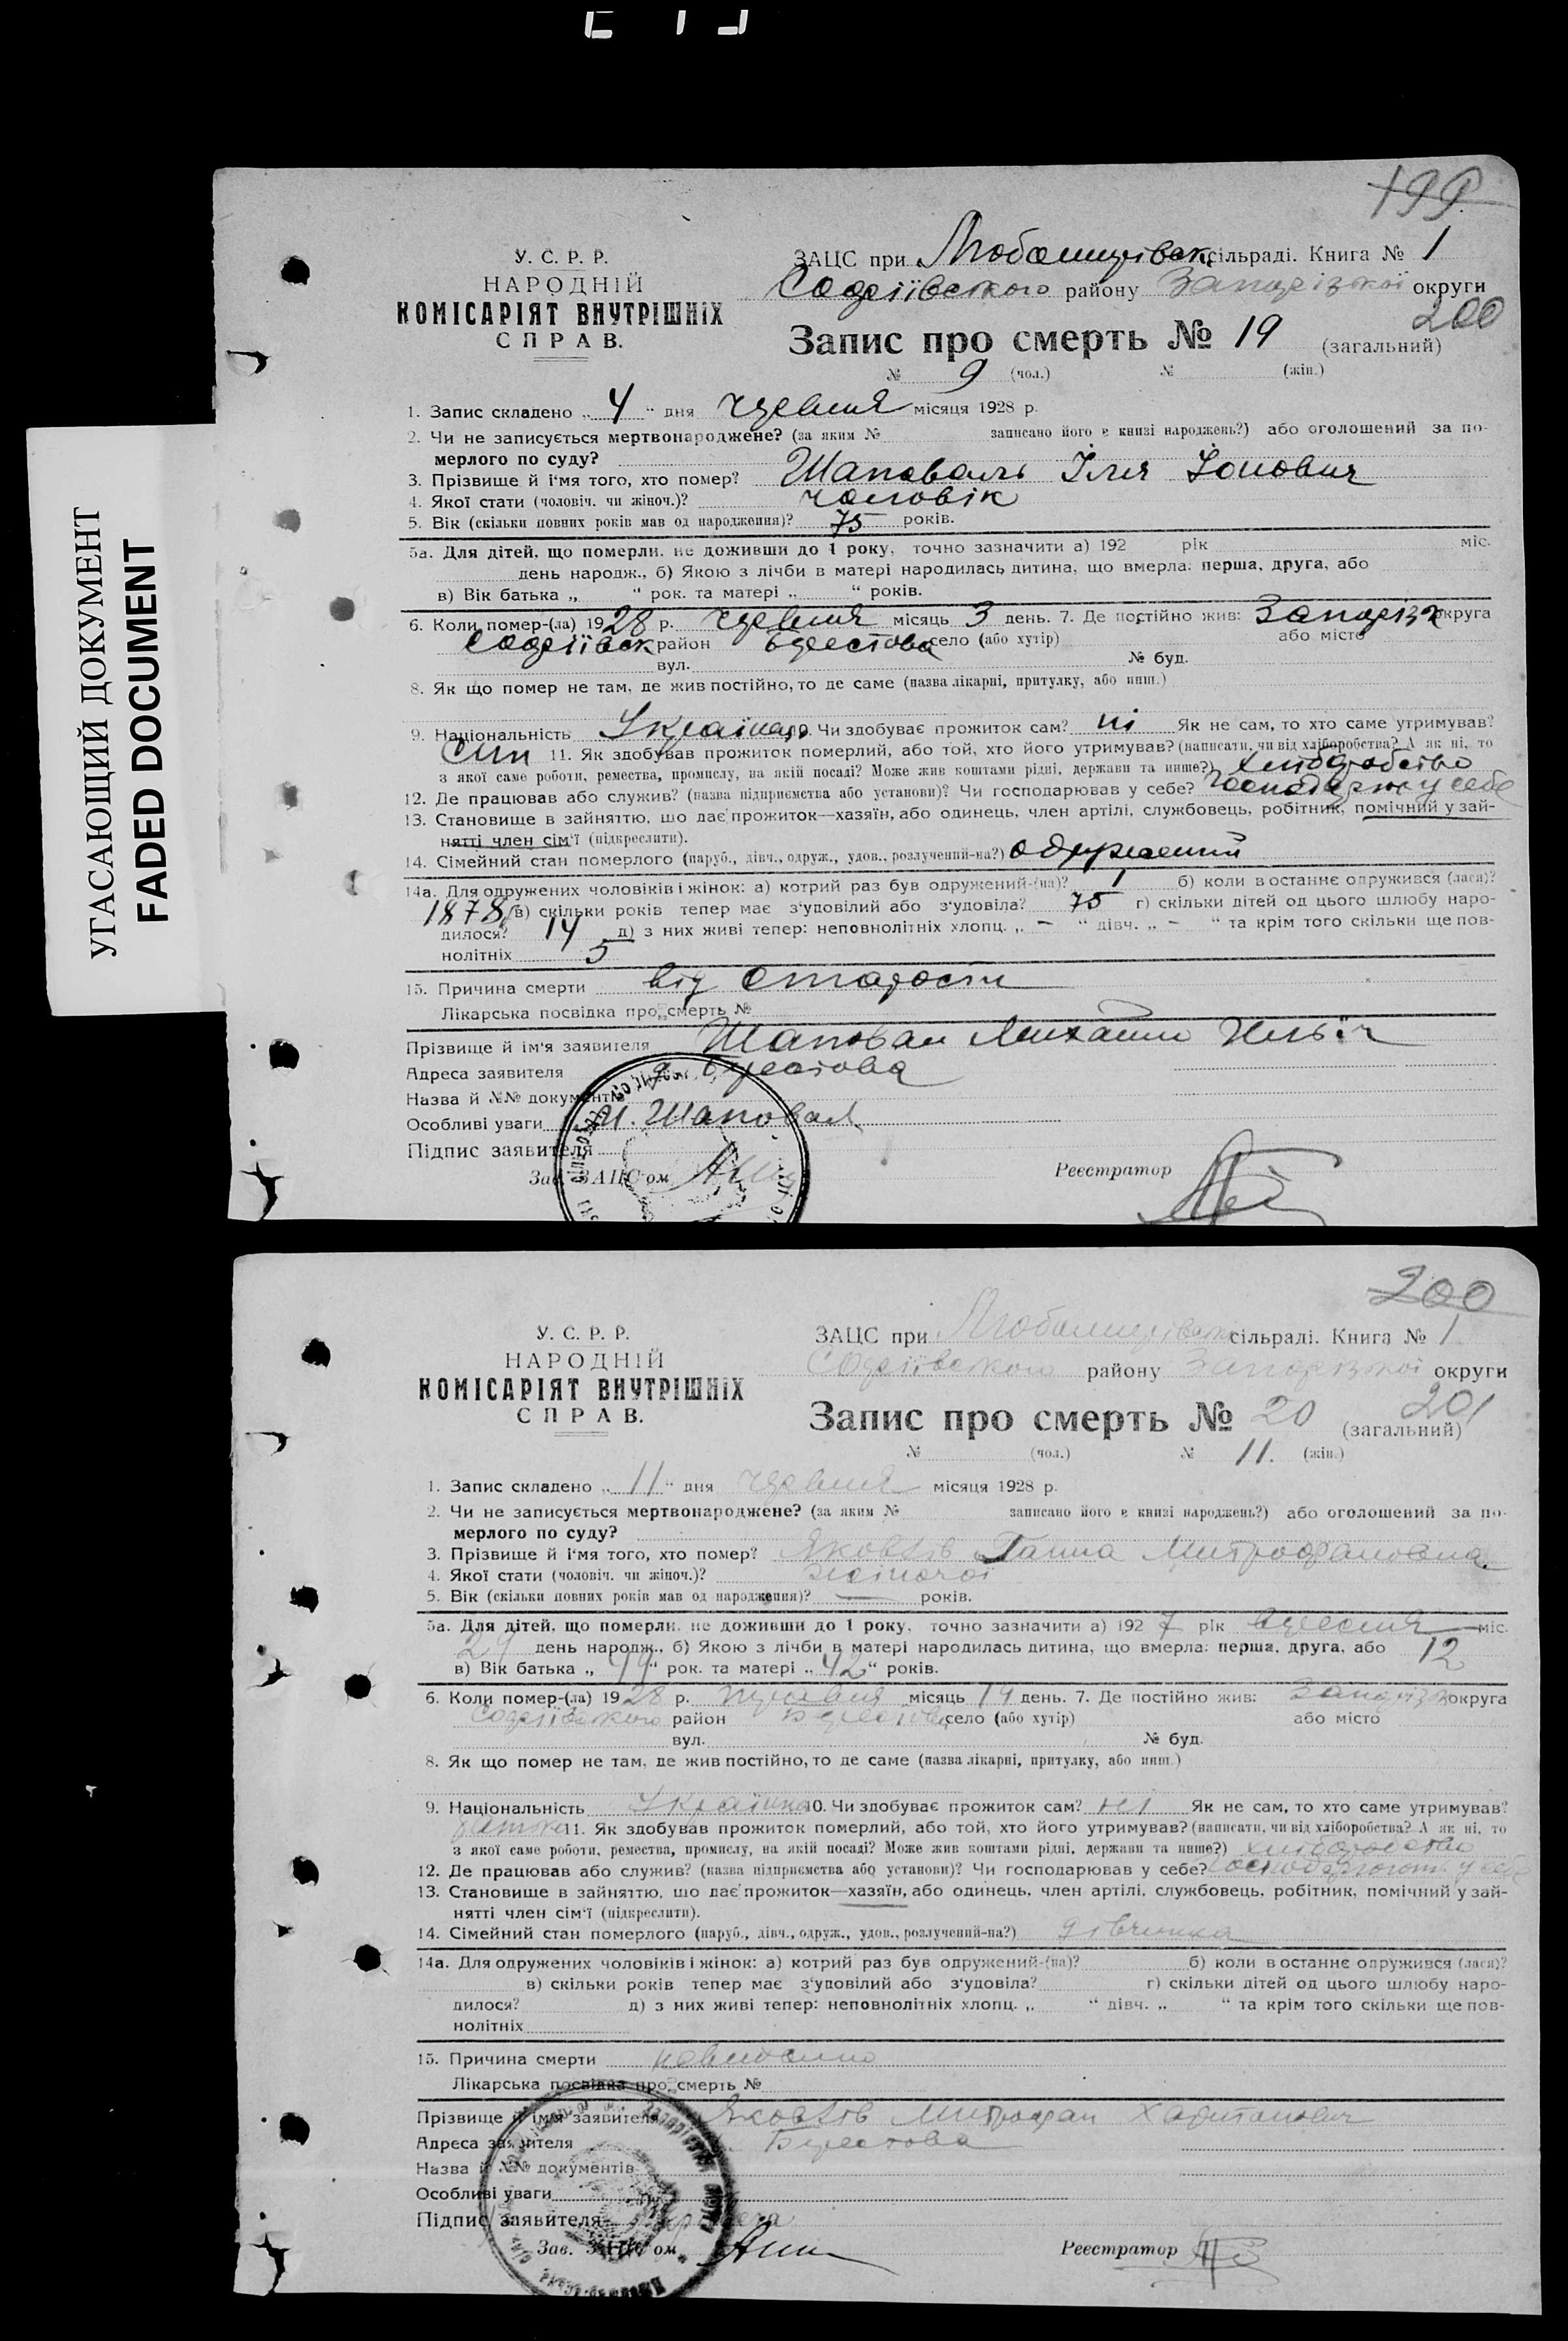 УГАСАЮЩИЙ ДОКУМЕНТ
FADED DOCUMENT
199
У. С. Р. Р.
НАРОДНІЙ
КОМІСАРІЯТ ВНУТРІШНІХ
СПРАВ.
ЗАЦС при Любомирівск сільраді. Книга № 1
Софіївського району Запорізкої округи
200
Запис про смерть № 19 (загальний)
№ 9 (чол.) № (жін.)
1. Запис складено „ 4 “ дня червня місяця 1928 р.
2. Чи не записується мертвонароджене? (за яким № записано його в книзі народжень?) або оголошений за по-
мерлого по суду?
3. Прізвище й ім'я того, хто помер? Шаповаль Ілля Іонович
4. Якої стати (чоловіч. чи жіноч.)? чоловік
5. Вік (скільки повних років мав од народження)? 75 років.
5а. Для дітей, що померли, не доживши до 1 року, точно зазначити а) 192 рік міс.
день народж., б) Якою з лічби в матері народилась дитина, що вмерла: перша, друга, або
в) Вік батька „ “ рок. та матері „ “ років.
6. Коли помер-(ла) 1928 р. червня місяць 3 день. 7. Де постійно жив: Запоріз округа
Софіївск район Берестова село (або хутір) або місто
вул. № буд.
8. Як що помер не там, де жив постійно, то де саме (назва лікарні, притулку, або инш.)
9. Національність Українец 10. Чи здобуває прожиток сам? ні Як не сам, то хто саме утримував?
Син 11. Як здобував прожиток померлий, або той, хто його утримував? (написати, чи від хліборобства? А як ні, то
з якої саме роботи, ремества, промислу, на якій посаді? Може жив коштами рідні, держави та инше?) хлиборобство
12. Де працював або служив? (назва підприємства або установи)? Чи господарював у себе? у себе
13. Становище в зайняттю, що дає прожиток—хазяїн, або одинець, член артілі, службовець, робітник, помічний у зай-
нятті член сім'ї (підкреслити).
14. Сімейний стан померлого (паруб., дівч., одруж., удов., розлучений-на?) одружений
14а. Для одружених чоловіків і жінок: а) котрий раз був одружений-(на)? 1 б) коли востаннє одружився (лася)?
1878 в) скільки років тепер має з'удовілий або з'удовіла? 75 г) скільки дітей од цього шлюбу наро-
дилося? 14 д) з них живі тепер: неповнолітніх хлопц. „ – “ дівч. „ – “ та крім того скільки ще пов-
нолітніх 5
15. Причина смерти від старости
Лікарська посвідка про смерть №
Прізвище й ім'я заявителя Шаповал Михайло Ильїч
Адреса заявителя Берестова
Назва й №№ документів
Особливі уваги И. Шаповал
Підпис заявителя
Зав. ЗАЦС'ом Реєстратор
200
У. С. Р. Р.
НАРОДНІЙ
КОМІСАРІЯТ ВНУТРІШНІХ
СПРАВ.
ЗАЦС при Любомирівск сільраді. Книга № 1
Софіївського району Запорізкої округи
201
Запис про смерть № 20 (загальний)
№ (чол.) № 11. (жін.)
1. Запис складено „ 11 “ дня червня місяця 1928 р.
2. Чи не записується мертвонароджене? (за яким № записано його в книзі народжень?) або оголошений за по-
мерлого по суду?
3. Прізвище й ім'я того, хто помер? Яковлів Ганна Митрофановна
4. Якої стати (чоловіч. чи жіноч.)? жіночої
5. Вік (скільки повних років мав од народження)? — років.
5а. Для дітей, що померли, не доживши до 1 року, точно зазначити а) 1927 рік вересня міс.
29 день народж., б) Якою з лічби в матері народилась дитина, що вмерла: перша, друга, або 12
в) Вік батька „ 49 “ рок. та матері „ 42 “ років.
6. Коли помер-(ла) 1928 р. місяць 19 день. 7. Де постійно жив: Запоріз округа
Софіївського район Берестова село (або хутір) або місто
вул. № буд.
8. Як що помер не там, де жив постійно, то де саме (назва лікарні, притулку, або инш.)
9. Національність Українка 10. Чи здобуває прожиток сам? ні Як не сам, то хто саме утримував?
11. Як здобував прожиток померлий, або той, хто його утримував? (написати, чи від хліборобства? А як ні, то
з якої саме роботи, ремества, промислу, на якій посаді? Може жив коштами рідні, держави та инше?) хлиборобство
12. Де працював або служив? (назва підприємства або установи)? Чи господарював у себе? у себе
13. Становище в зайняттю, що дає прожиток—хазяїн, або одинець, член артілі, службовець, робітник, помічний у зай-
нятті член сім'ї (підкреслити).
14. Сімейний стан померлого (паруб., дівч., одруж., удов., розлучений-на?) дівчинка
14а. Для одружених чоловіків і жінок: а) котрий раз був одружений-(на)? б) коли востаннє одружився (лася)?
в) скільки років тепер має з'удовілий або з'удовіла? г) скільки дітей од цього шлюбу наро-
дилося? д) з них живі тепер: неповнолітніх хлопц. „ “ дівч. „ “ та крім того скільки ще пов-
нолітніх
15. Причина смерти невидомо
Лікарська посвідка про смерть №
Прізвище й ім'я заявителя Яковлів Митрофан Харитонович
Адреса заявителя Берестова
Назва й №№ документів
Особливі уваги
Підпис заявителя
Зав. ЗАЦС'ом Реєстратор